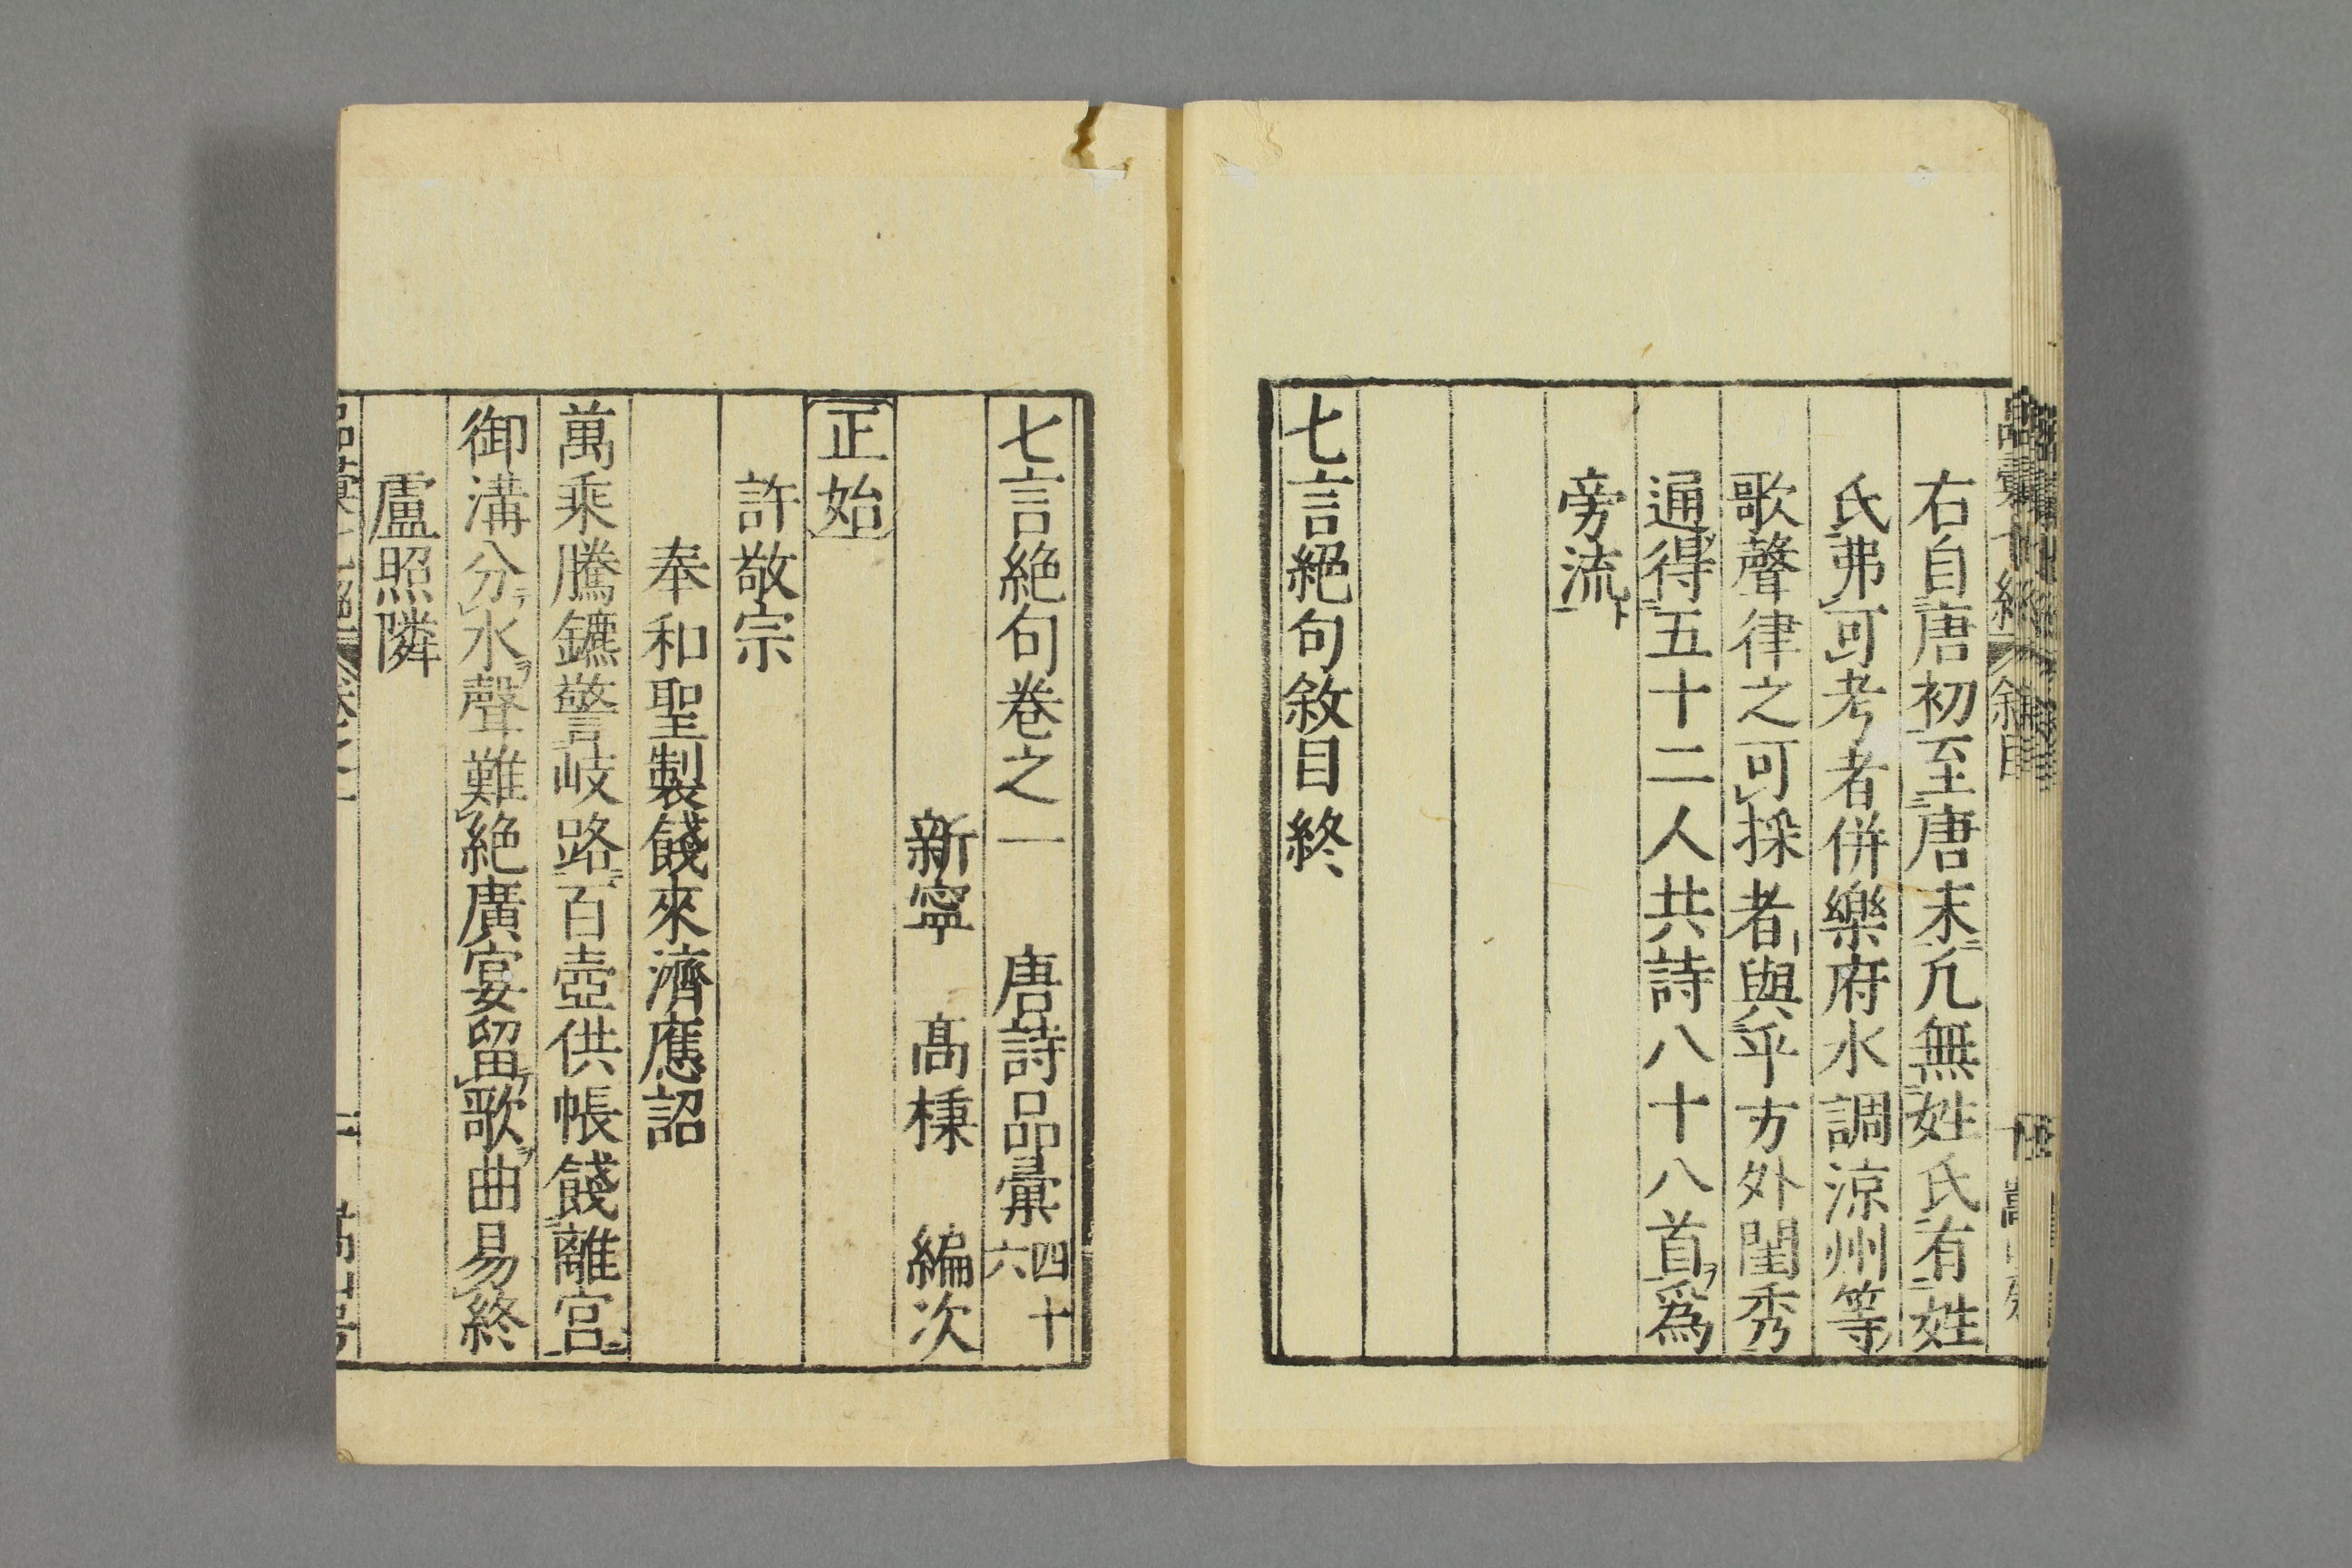 右自唐初至唐末凢無姓氏有姓
氏弗可考者併樂府水調涼州等
歌聲律之可採者與乎方外閨秀
通得五十二人共詩八十八首爲
旁流
七言絕句敘目終
七言絶句卷之一　唐詩品彙四十六
新寧　髙棅　編次
正始
許敬宗
奉和聖製餞來濟應詔
萬乘騰鑣警岐路百壺供帳餞離宮
御溝分水聲難絶廣宴留歌曲易終
盧照隣